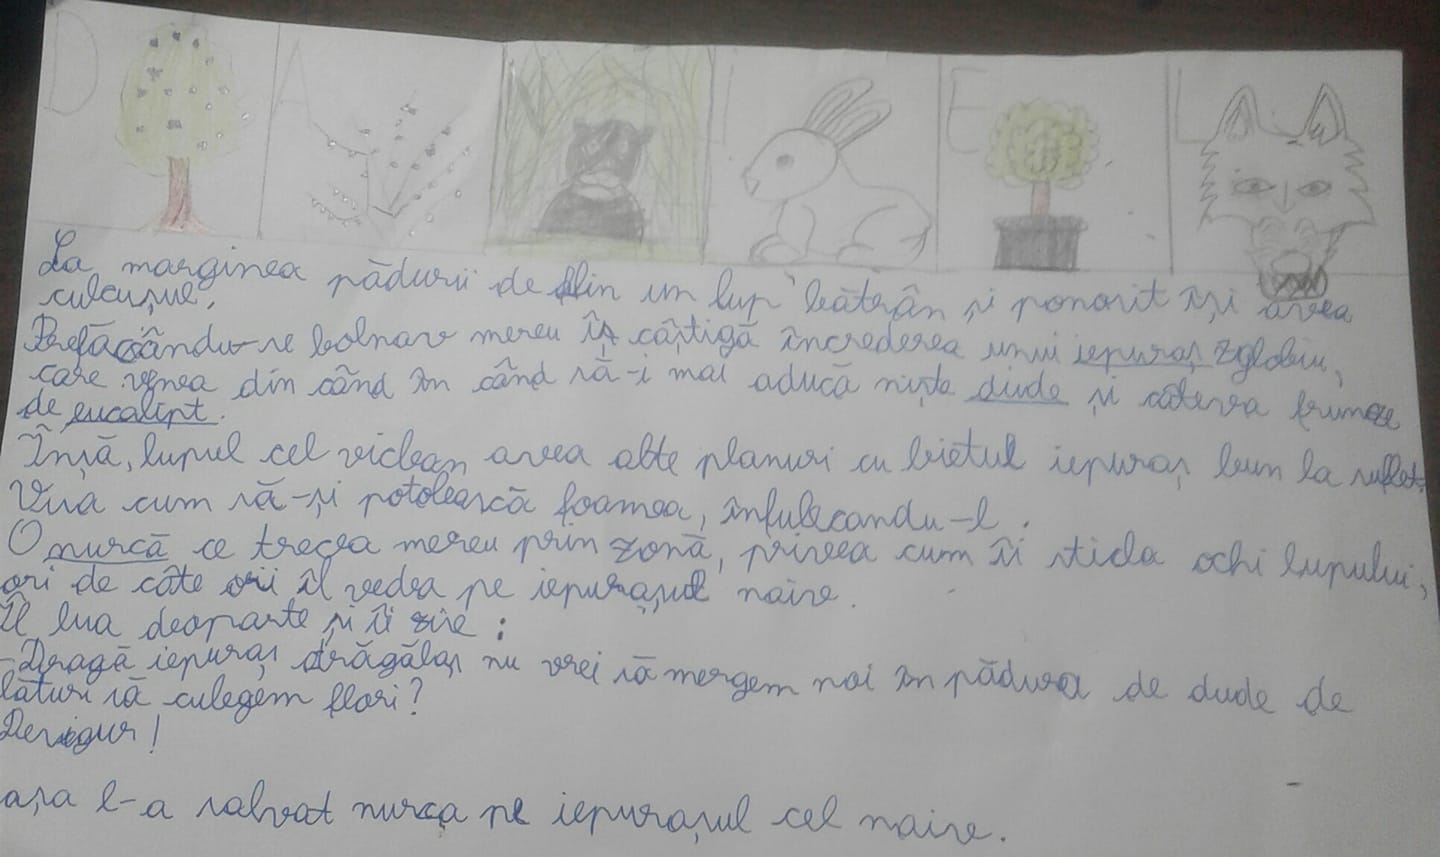 D A I E L
La marginea pădurii de Alin un lup bătrân și ponosit își avea
culcușul.
Prefăcându-se bolnav mereu îș câștigă încrederea unui iepuraș zglobiu,
care venea din când în când să-i mai aducă niște dude și câteva frunze
de eucalipt.
Însă, lupul cel viclean avea alte planuri cu bietul iepuraș bun la suflet.
Vria cum să-și potolească foamea, înfulecandu-l.
O nurcă ce trecea mereu prin zonă, privea cum îi sticla ochi lupului,
ori de câte ori îl vedea pe iepurașul naive.
Îl lua deoparte și îi zise :
-Dragă iepuraș drăgălaș nu vrei să mergem noi în pădurea de dude de
lături să culegem flori?
Desigur!
așa l-a salvat nurca pe iepurașul cel naive.